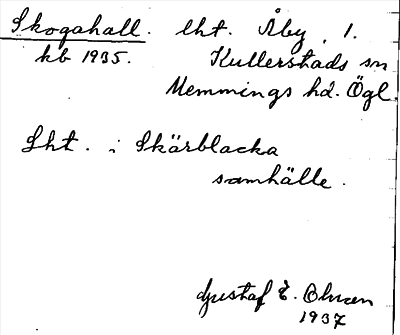 Skogahall. lht. Åby, 1.
kb 1935. Kullerstads sn
Memmings hd. Ögl.
Lht. i Skärblacka
samhälle.
Gustaf E.
1937